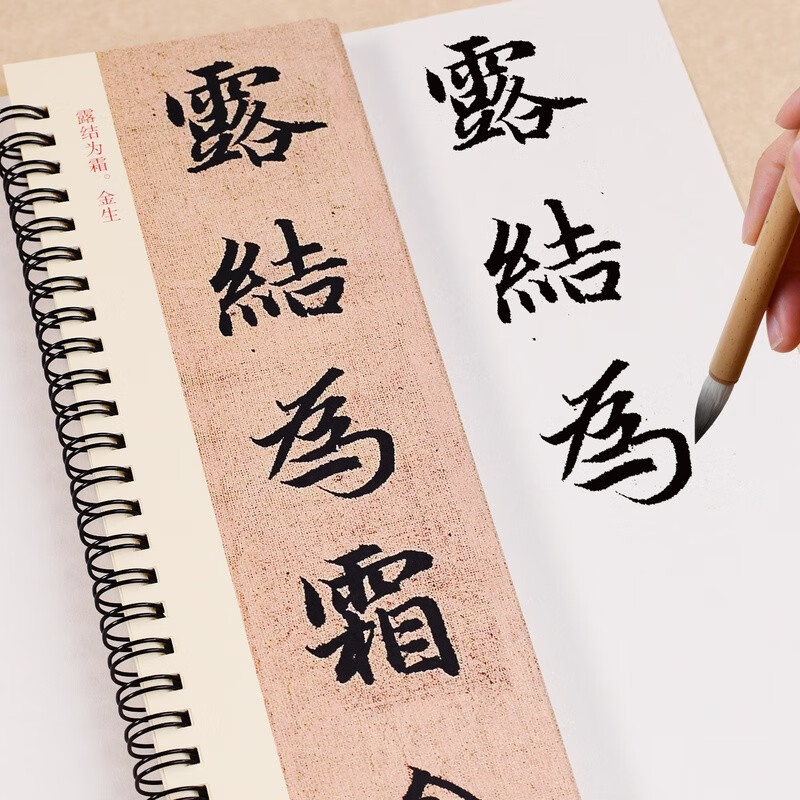 露结为霜。金生
露結為霜
露結為